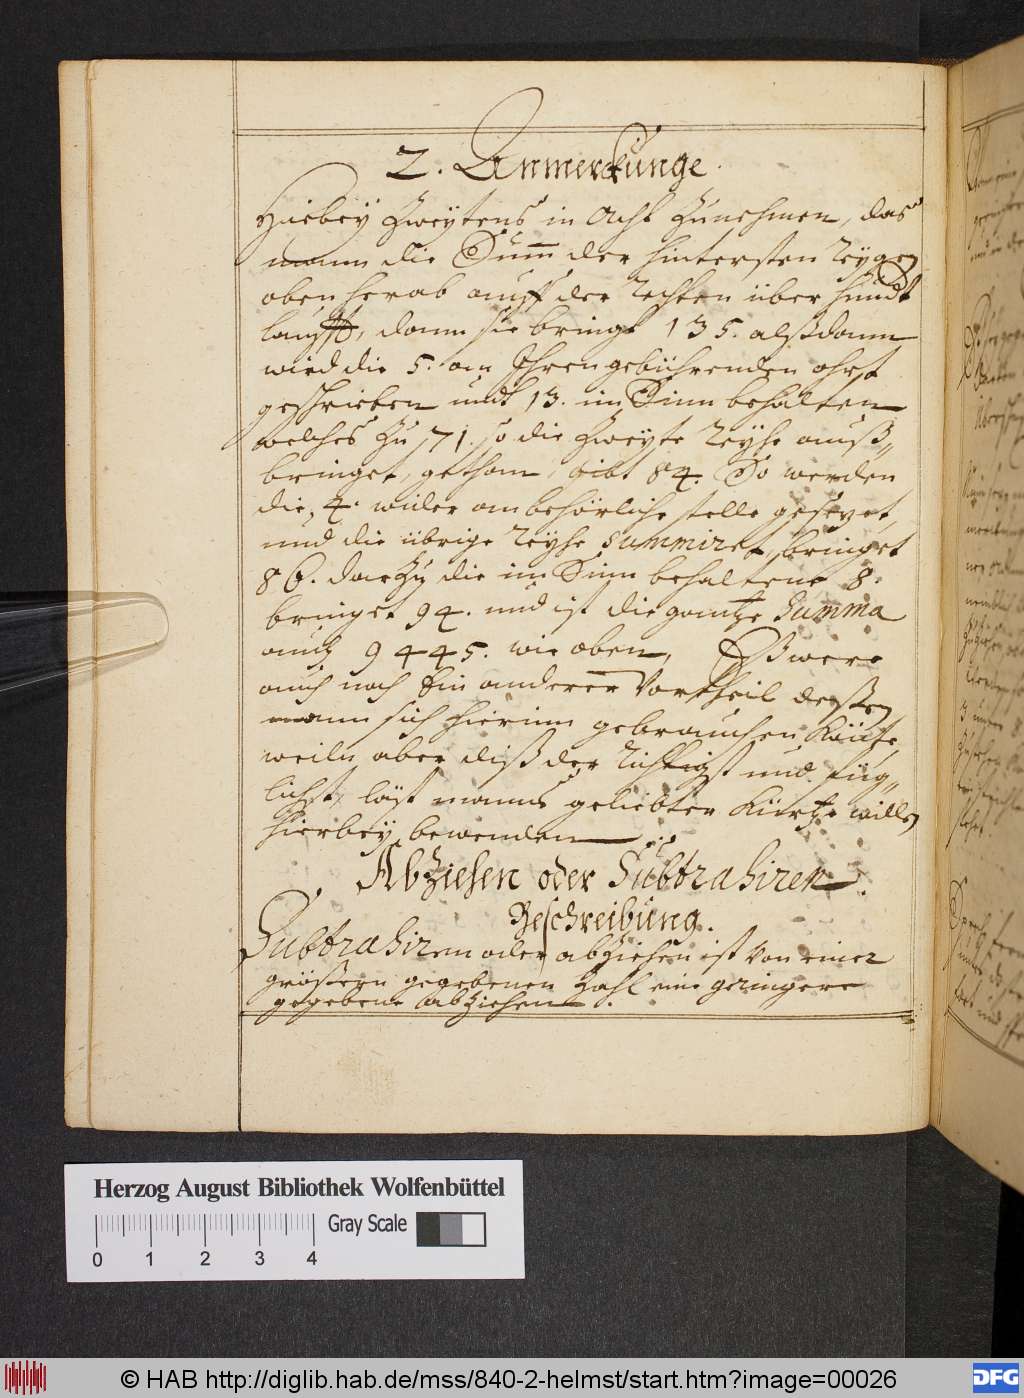 2. Anmerckunge.
Hiebey Zweytens in Acht Zunehmen, das
mann die Sum̄ der hintersten Reygen
oben herab auff der Rechten über hundt
laufft, dann sie bringt 135. alßdann
wird die 5. an Ihren gebührenden ohrt
geschrieben undt 13. im Sinn behalten
welches Zu 71. so die Zweyte Reyhe auß„
bringet, gethan, gibt 84. So werden
die 4. wider an behörliche stelle gesezet,
und die übrige Reyhe summiret, bringet
86. darZu die im Sinn behaltene 8.
bringet 94. und ist die gantze Summa
auch 9445. wie oben, Eß were
auch noch Ein anderer Vortheil deßen
mann sich hierinn gebrauchen könte,
weiln aber diß der Richtigst und füg„
lichst, läst manns geliebter Kürtze willen
hierbey bewenden
AbZiehen oder Subtrahiren.
Beschreibung.
Subtrahiren oder abZiehen ist Von einer
größern gegebenen Zahl eine geringere
gegebene abZiehen.
Herzog August Bibliothek Wolfenbüttel
Gray Scale
0 1 2 3 4
© HAB http://diglib.hab.de/mss/840-2-helmst/start.htm?image=00026
DFG